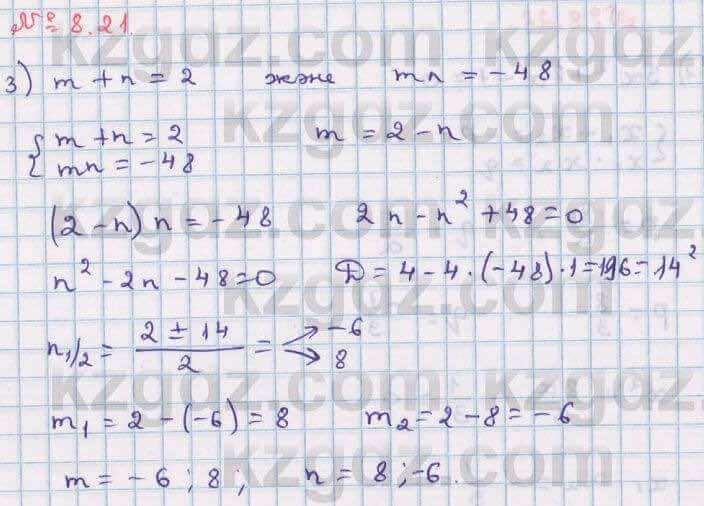 № 8.21.
3) m + n = 2 және mn = -48
{ m + n = 2 m = 2 - n
mn = -48
(2 - n) n = -48 2n - n² + 48 = 0
n² - 2n - 48 = 0 D = 4 - 4 · (-48) · 1 = 196 = 14²
n₁/₂ = (2 ± 14)/2 = -6
8
m₁ = 2 - (-6) = 8 m₂ = 2 - 8 = -6
m = -6 ; 8 ; n = 8 ; -6.
kzgdz.com